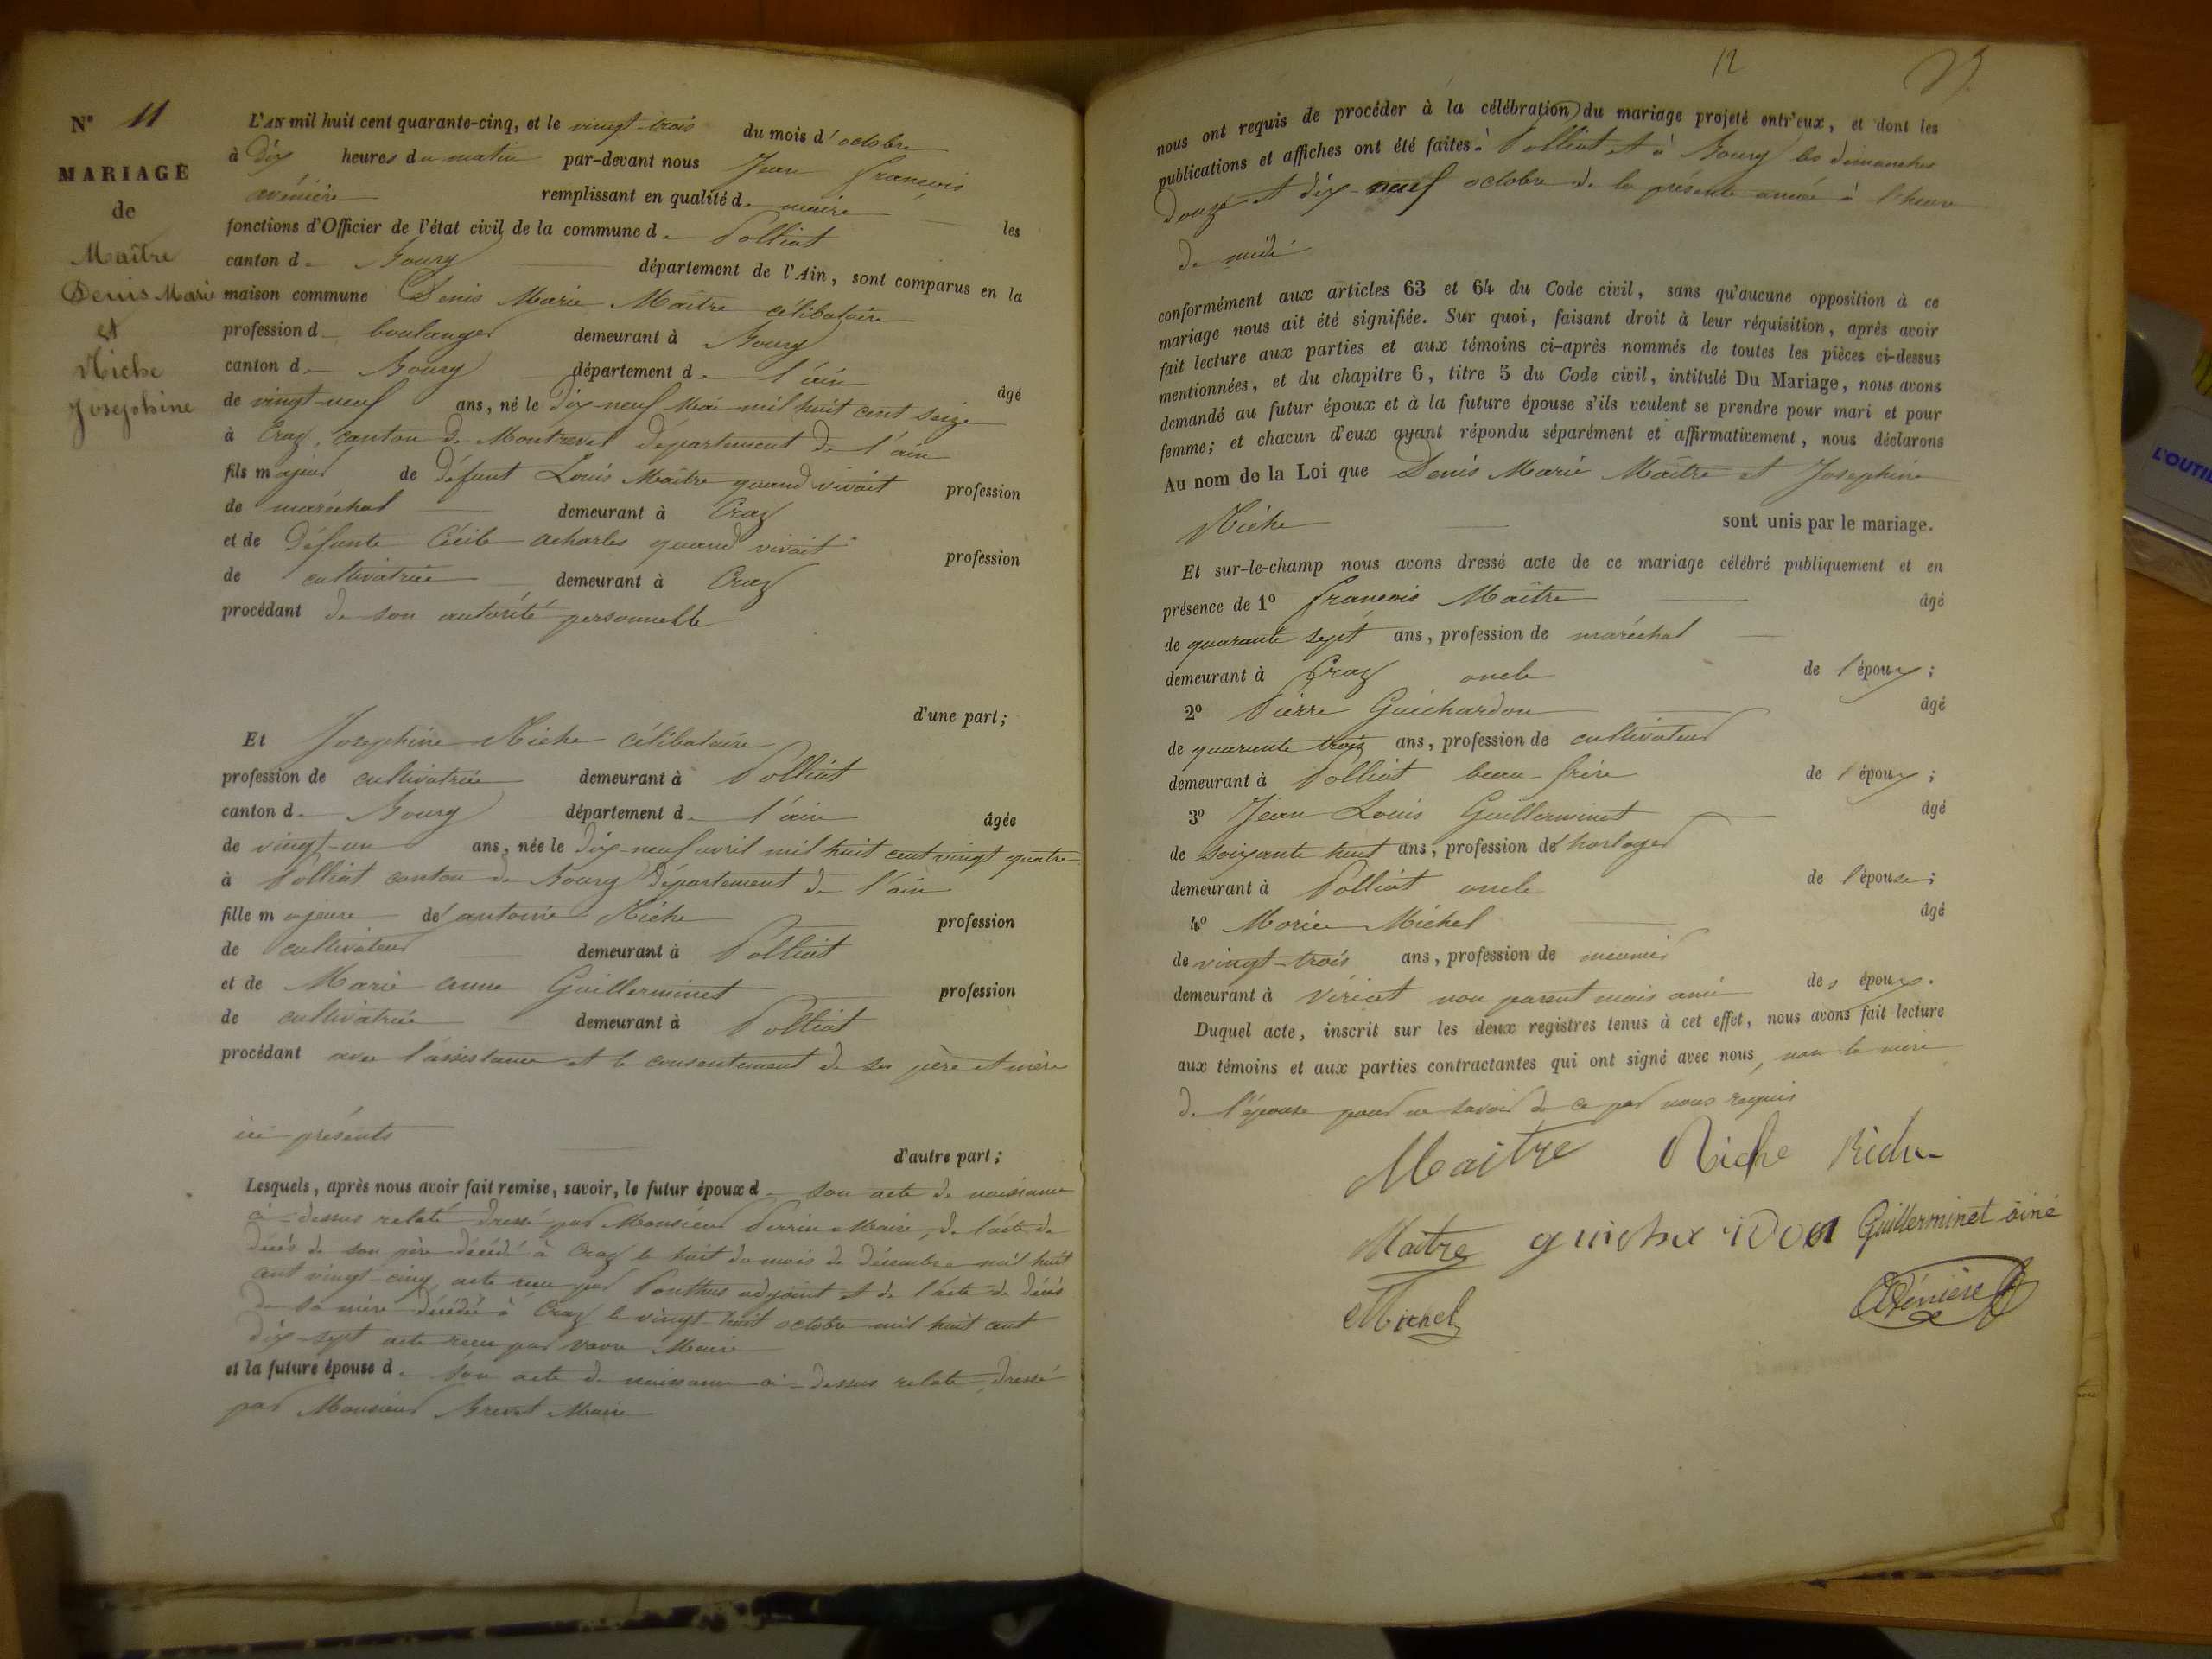 N° 11
MARIAGE
de
Maître
Denis Marie
et
Niche
Josephine
L'AN mil huit cent quarante-cinq, et le vingt-trois du mois d'octobre
à dix heures du matin par-devant nous Jean françois
avénière remplissant en qualité de maire les
fonctions d'Officier de l'état civil de la commune de Polliat
canton de Bourg département de l'Ain, sont comparus en la
maison commune Denis Marie Maître célibataire
profession de boulanger demeurant à Bourg
canton de Bourg département de l'ain âgé
de vingt-neuf ans, né le dix-neuf Mai mil huit cent seize
à Craz, canton de Montrevel département de l'ain
fils majeur de défunt Louis Maître quand vivait profession
de maréchal demeurant à Craz
et de défunte Cécile acharles quand vivait profession
de cultivatrice demeurant à Craz
procédant de son autorité personnelle
d'une part;
Et Josephine Niche célibataire
profession de cultivatrice demeurant à Polliat
canton de Bourg département de l'ain âgée
de vingt-un ans, née le dix-neuf avril mil huit cent vingt quatre
à Polliat canton de Bourg département de l'ain
fille majeure de antoine Niche profession
de cultivateur demeurant à Polliat
et de Marie anne Guillerminet profession
de cultivatrice demeurant à Polliat
procédant avec l'assistance et le consentement de ses père et mère
ici présents
d'autre part;
Lesquels, après nous avoir fait remise, savoir, le futur époux de son acte de naissance
ci-dessus relaté dressé par Monsieur Perrin Maire, de l'acte de
décès de son père décédé à Craz le huit du mois de décembre mil huit
cent vingt-cinq acte reçu par Ponthus adjoint et de l'acte de décès
de sa mère décédée à Craz le vingt-huit octobre mil huit cent
dix-sept acte reçu par Maire
et la future épouse de son acte de naissance ci-dessus relaté dressé
par Monsieur Brevet Maire
12
nous ont requis de procéder à la célébration du mariage projeté entr'eux, et dont les
publications et affiches ont été faites à Polliat et à Bourg les dimanches
douze et dix-neuf octobre de la présente année à l'heure
de midi
conformément aux articles 63 et 64 du Code civil, sans qu'aucune opposition à ce
mariage nous ait été signifiée. Sur quoi, faisant droit à leur réquisition, après avoir
fait lecture aux parties et aux témoins ci-après nommés de toutes les pièces ci-dessus
mentionnées, et du chapitre 6, titre 5 du Code civil, intitulé Du Mariage, nous avons
demandé au futur époux et à la future épouse s'ils veulent se prendre pour mari et pour
femme; et chacun d'eux ayant répondu séparément et affirmativement, nous déclarons
Au nom de la Loi que Denis Marie Maître et Josephine
Niche sont unis par le mariage.
Et sur-le-champ nous avons dressé acte de ce mariage célébré publiquement et en
présence de 1° françois Maître âgé
de quarante sept ans, profession de maréchal
demeurant à Craz oncle de l'époux;
2° Pierre Guichardon âgé
de quarante trois ans, profession de cultivateur
demeurant à Polliat beau-frère de l'époux;
3° Jean Louis Guillerminet âgé
de soixante huit ans, profession d'horloger
demeurant à Polliat oncle de l'épouse;
4° Marie Michel âgé
de vingt-trois ans, profession de meunier
demeurant à Viriat non parent mais ami des époux.
Duquel acte, inscrit sur les deux registres tenus à cet effet, nous avons fait lecture
aux témoins et aux parties contractantes qui ont signé avec nous, non la mère
de l'épouse pour ne savoir de ce par nous requis
Maitre Niche Niche
Maître guichardon Guillerminet ainé
Michel Avénière
L'OUTIL